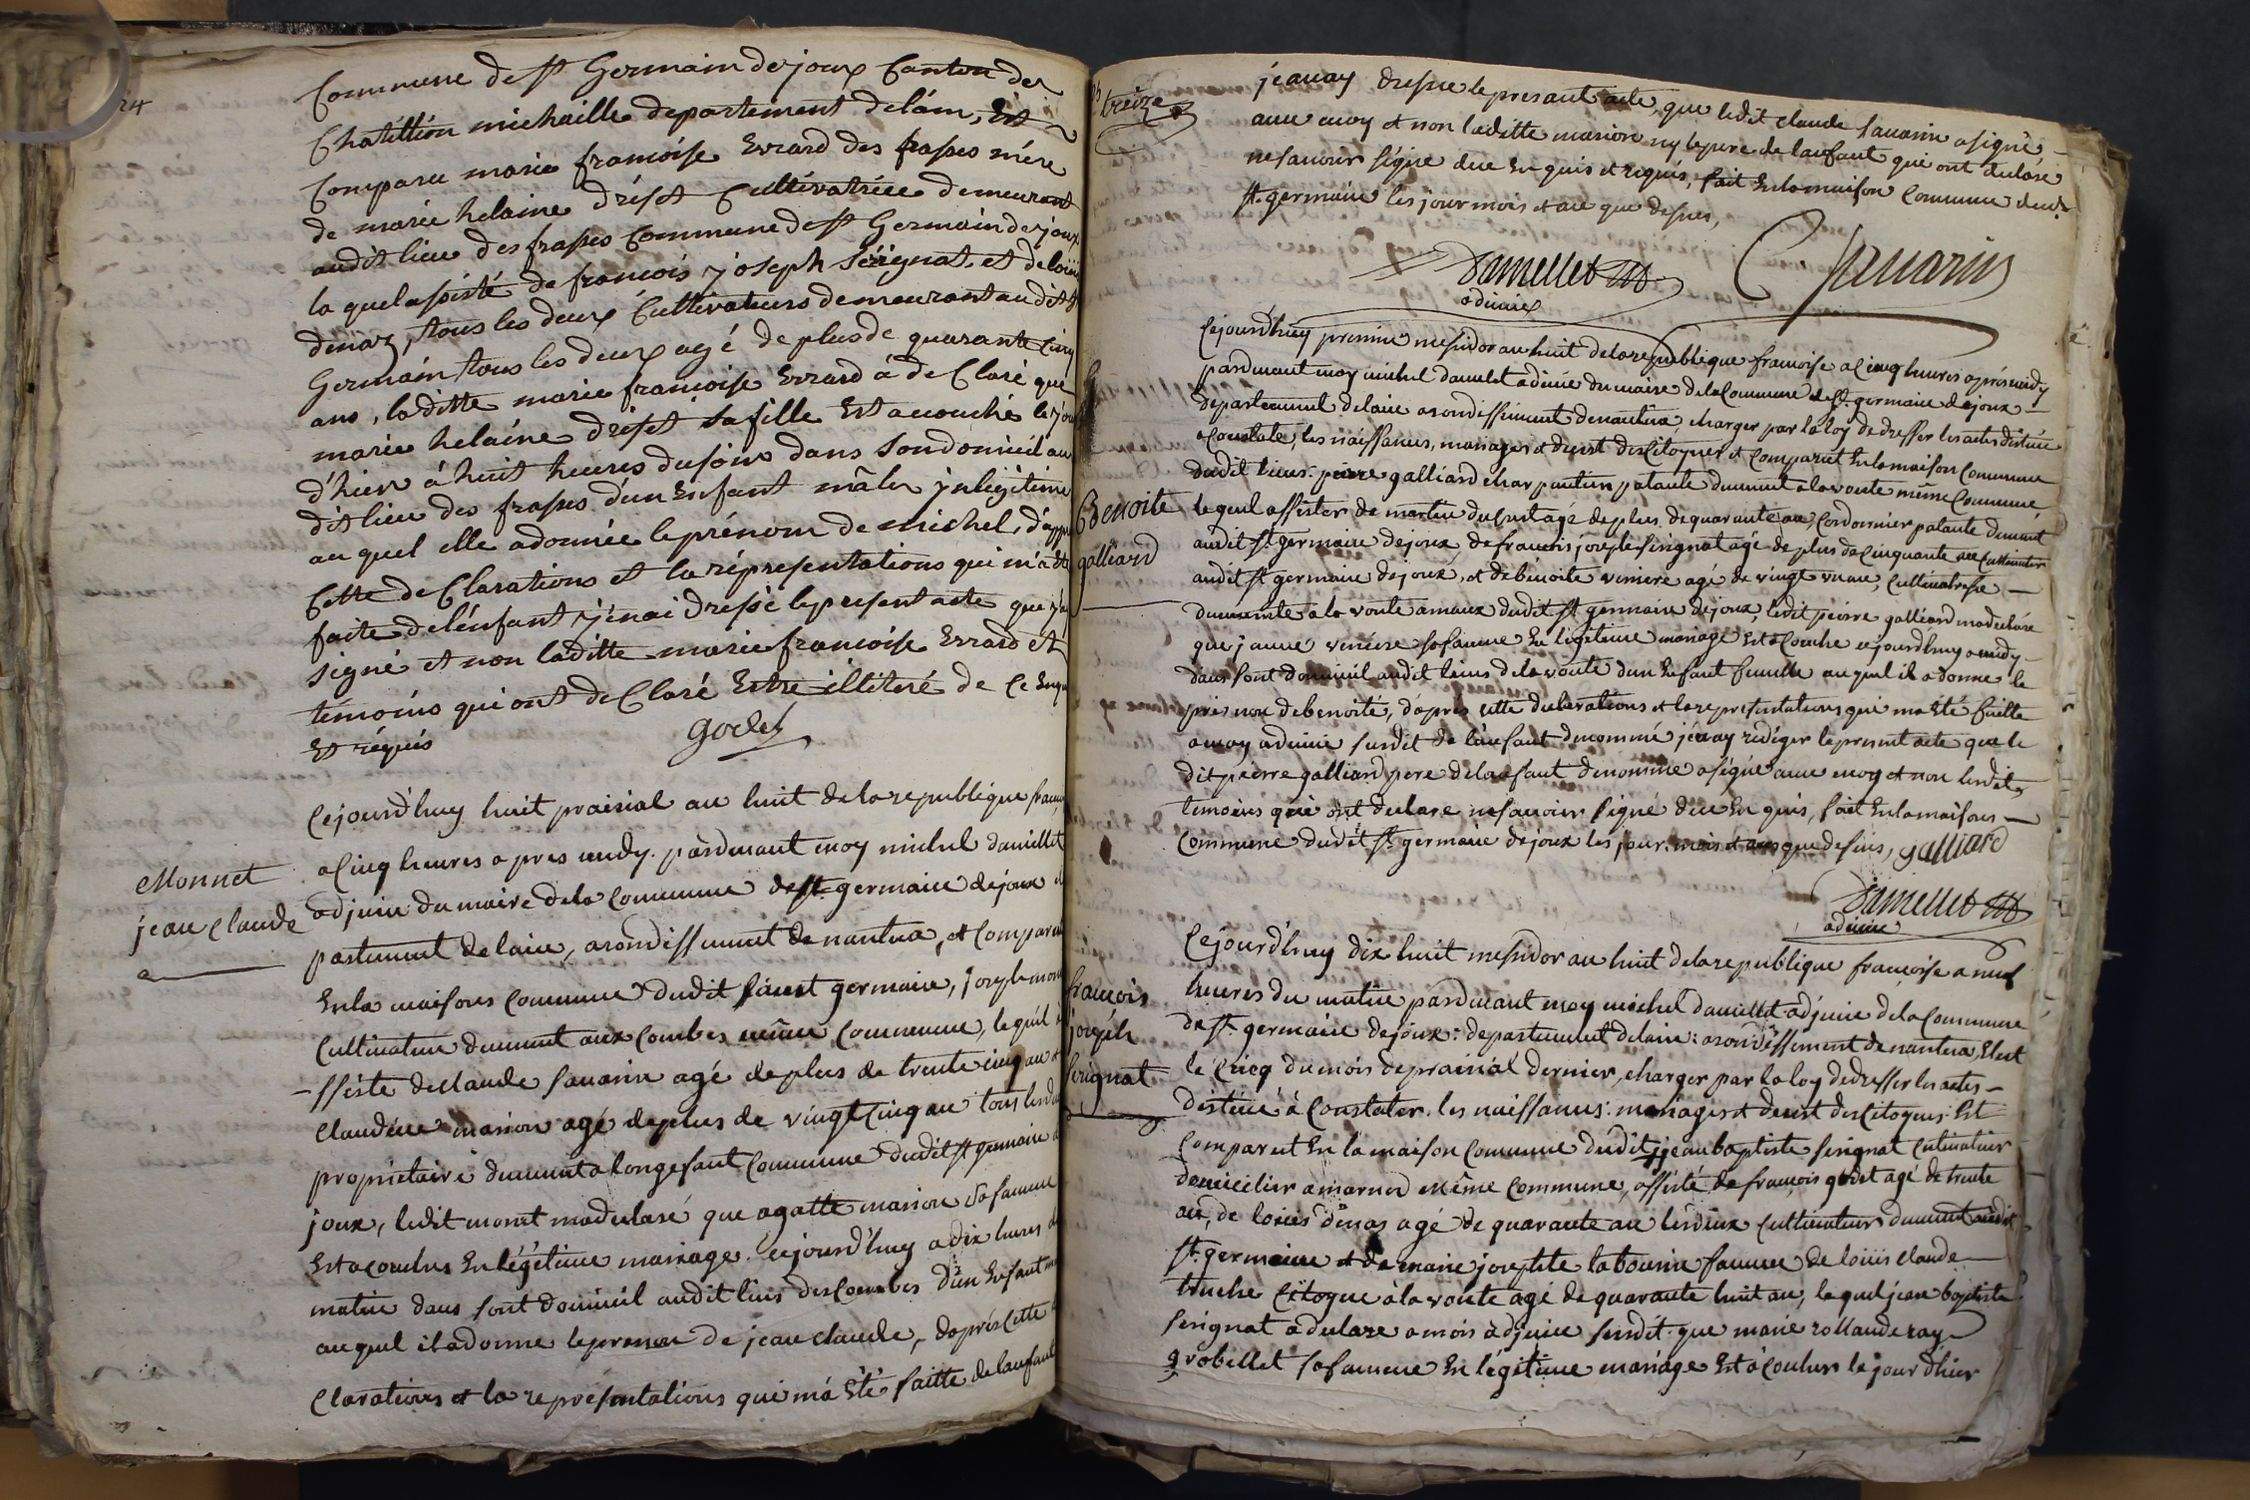 24
Commune de St Germain de joux Canton de
Chatillion michaille departement delain, Est
Comparu marie francoise Evrard des frasses mére
de marie helaine drêset Cultivatrice demeurant
audit lieu des frasses Commune de St Germain de joux
la quel assisté de francois joseph sérignat, et de loüis
dénaz, tous les deux Cultivateurs demeurant audit St
Germain tous les deux agé de plus de quarante cinq
ans, laditte marie francoise Evrard à de Claré que
marie helaéne dréset sa fille Est acouché le jour
d'hier à huit heures du soir dans son domicil au
dit lieu des frasses d'un Enfant mâle ynlégitime
au quel elle adonnée le prénom de michel, d'apprés
Cette de Claration et la réprésentations qui m'a été
faite de l'énfant j'énai dréssé le present acte que j'ai
signé et non laditte marie francoise Evrard et
témoins qui ont de Claré Estre illiteré de ce Enqui
Et réquis
godet
Monnet
jean claude
Cejourd'huy huit prairial an huit de la republique francoi
a Cinq heures a pres midy. pardevant moy michel damillet
adjuin du maire dela commune de St germain de joux de
partement de lain, arondissement de nantua, et Comparut
En la maison commune dudit saint germain, joseph monet
Cultivateur demeurant aux Combes même commune, lequel a
ssisté de claude savarin agé de plus de trente cinq an et
Claudine marion agé de plus de vingt cinq an tous les deux
proprietaire demeurant a longefant commune dudit St germain de
joux, ledit monet ma declaré que agatte marion sa famme
Est acouchés En légitime mariage. Cejourd'huy a dix heures du
matin dans sont domicil audit lieu des Combes d'un Enfant male
au quel il a donne le prenom de jean claude, d'aprés Cette de
Clarations et la representations qui má Été faitte de lanfant
treize
jeanay dresse le presant acte, que ledit claude savarin a signé
avec moy et non laditte marion ny le pere de lanfant qui ont declaré
ne savoir signe de ce En quis et requis, fait En la maison commune dudit
St. germain les jour mois et an que desus,
Damillet
adjuin
C Savarin
Benoite
galliard
Cejourd'huy premier mesidor an huit de la republique francoise a Cinq heures aprés midy
pardevant moy michel damillet adjuin du maire de la Commune de St. germain de joux
departement delain arondissement de nantua, charger par la loy de dresser les actes destiné
a Constaté, les naissances, mariages et deces des Citoyens et Comparut En la maison commune
dudit lieu: pierre galliard charpantier patante demeurant a la voute même Commune
lequel assister de martin ducret agé de plus de quarante an, Cordonnier patante demeurant
audit St germain de joux, de francois joseph serignat agé de plus de cinquante an Cultivateur
audit St germain de joux, et de benoite veniere agé de vingt un an, Cultivatrise
demeurante a la voute a maux dudit St germain de joux, ledit pierre galliard ma declaré
que jeanne veniere sa famme En légitime mariage Est acouche cejourd'huy a midy
dans sont domicil audit lieu de la voute d'un Enfant femelle au quel il a donne le
prénom de benoite, d'aprés cette declarations et la representations qui ma Été faitte
a moy adjuin susdit de lanfant denommé jénay rédiger le present acte que le
dit pierre galliard pere de lanfant denomme a signé avec moy et non lesdits
temoins qui ont declare ne savoir signé de ce En quis, fait En la maison
Commune dudit St germain de joux les jour, mois et ans que desus, galliard
Damillet
adjuin
francois
joseph
serignat
Cejourd'huy dix huit mesidor an huit de la republique francoise a neuf
heures du matin pardevant moy michel damillet adjuin de la Commune
de St germain de joux: departement delain: arondissement de nantua, Elut
le Cinq du mois de prairial dernier, charger par la loy de dresser les actes
destiné à Constater. les naissances: mariages et deces des Citoyens: Est
Comparut En la maison commune dudit jean baptiste serignat cultivateur
domicilier a marnod même commune, assisté de francois godet agé de trente
an, de loüis dénas agé de quarante an les deux cultivateurs demeurant audit
St. germain et de marie josephte labourier famme de loüis claude
truche Citoyene à la voute agé de quarante huit an, lequel jean baptiste
serignat a declare a mois adjuin susdit que marie rollande ray
grobellet sa famme En légitime mariage Est acouchés le jour d'hier